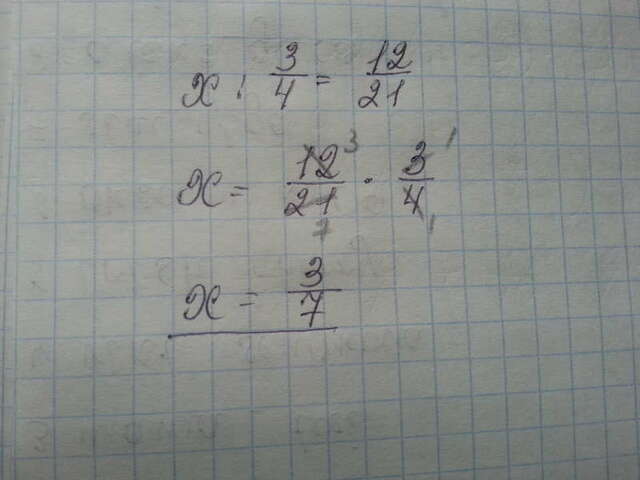 x : 3/4 = 12/21
x = 12/21 3 7 · 3/4 1 1
x = 3/7